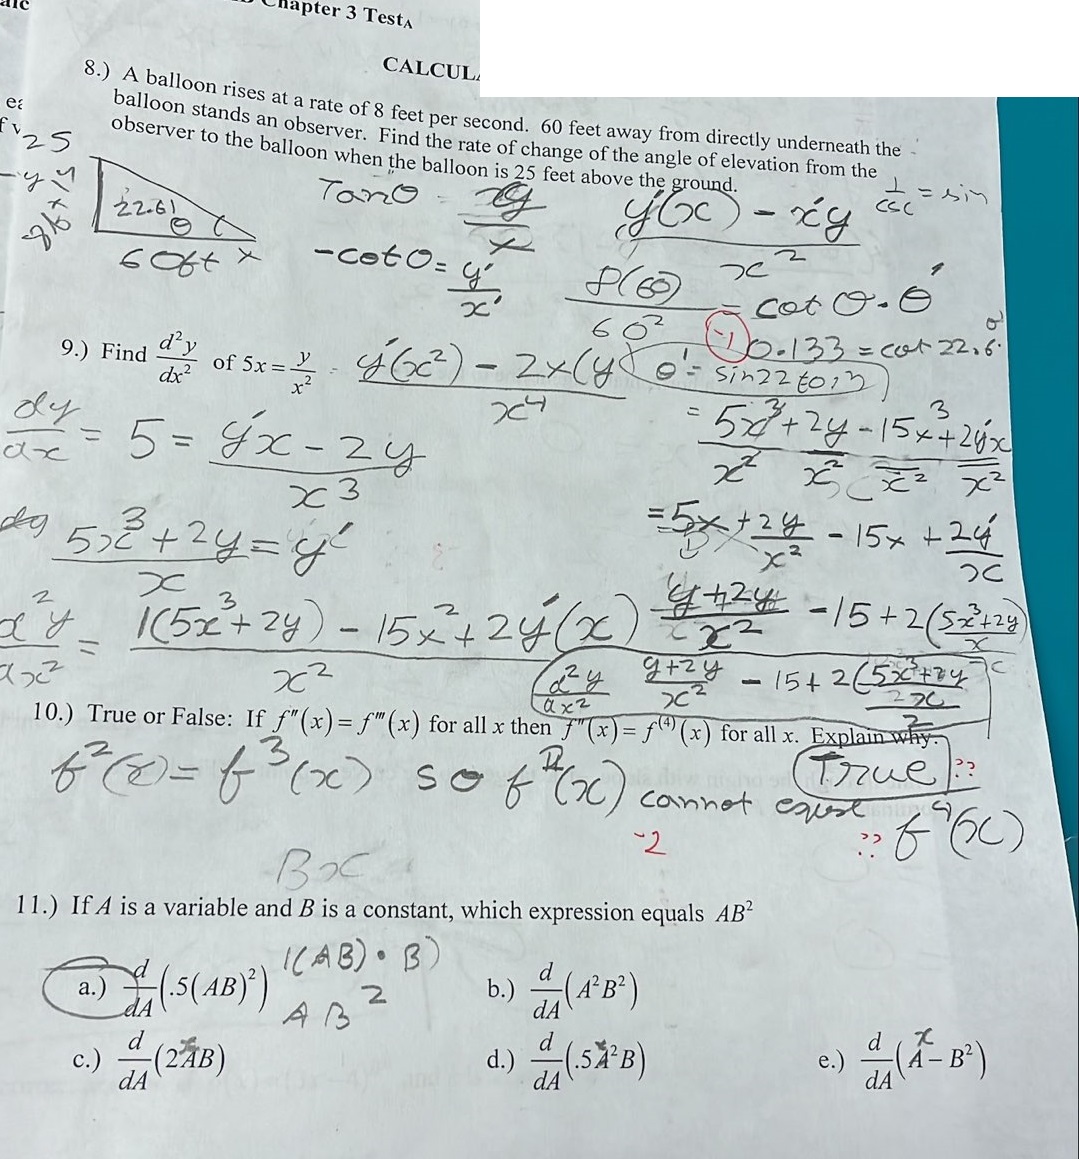 Chapter 3 Test A
CALCUL
8.) A balloon rises at a rate of 8 feet per second. 60 feet away from directly underneath the
balloon stands an observer. Find the rate of change of the angle of elevation from the
observer to the balloon when the balloon is 25 feet above the ground.
25
22.61
θ
60ft x
Tanθ = y/x
y'(x) - x'y / x²
1/csc = sin
-cotθ = y'/x'
8(60) / 60² = cotθ·θ'
-1
0.133 = cot 22.6·
θ' =
9.) Find d²y/dx² of 5x = y/x²
y'(x²) - 2x(y / x⁴
dy/dx = 5 = y'x - 2y / x³
= 5x³+2y / x² - 15x³+2y'x / x²
5x³+2y / x = y'
= 5x + 2y/x² - 15x + 2y'/x
d²y/dx² = 1(5x³+2y) - 15x²+2y'(x) / x²
y+2y / x² - 15 + 2(5x³+2y / x
d²y/dx² y+2y / x² - 15 + 2(5x³+2y
10.) True or False: If f''(x) = f'''(x) for all x then f''(x) = f⁽⁴⁾(x) for all x. Explain why.
True ??
f²(x) = f³(x) so f^II(x) cannot equal
?? f⁴(x)
-2
Bx
11.) If A is a variable and B is a constant, which expression equals AB²
a.) d/dA (.5(AB)²) 1(AB)·B)
AB²
b.) d/dA (A²B²)
c.) d/dA (2AB)
d.) d/dA (.5A²B)
e.) d/dA (A - B²)